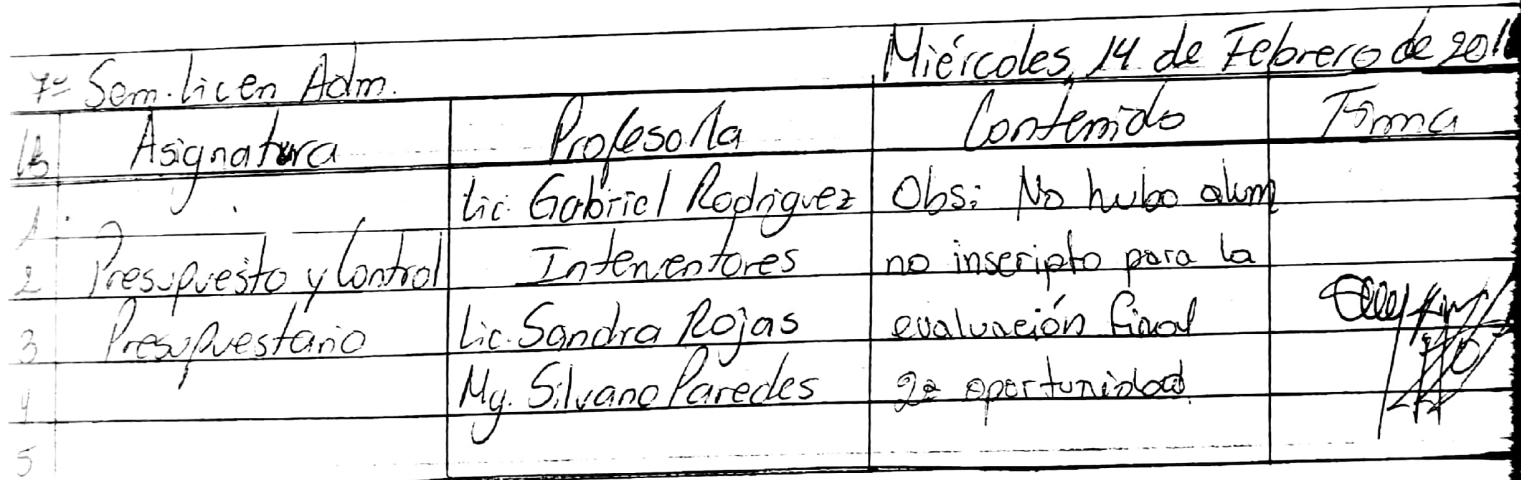 7º Sem. Lic en Adm. Miércoles, 14 de Febrero de 201
Asignatura Profesor/a Contenido Firma
1 Lic. Gabriel Rodriguez Obs: No hubo alum
2 Presupuesto y Control Interventores no inscripto para la
3 Presupuestario Lic. Sandra Rojas evaluación final
4 Mg. Silvano Paredes 2ª oportunidad.
5